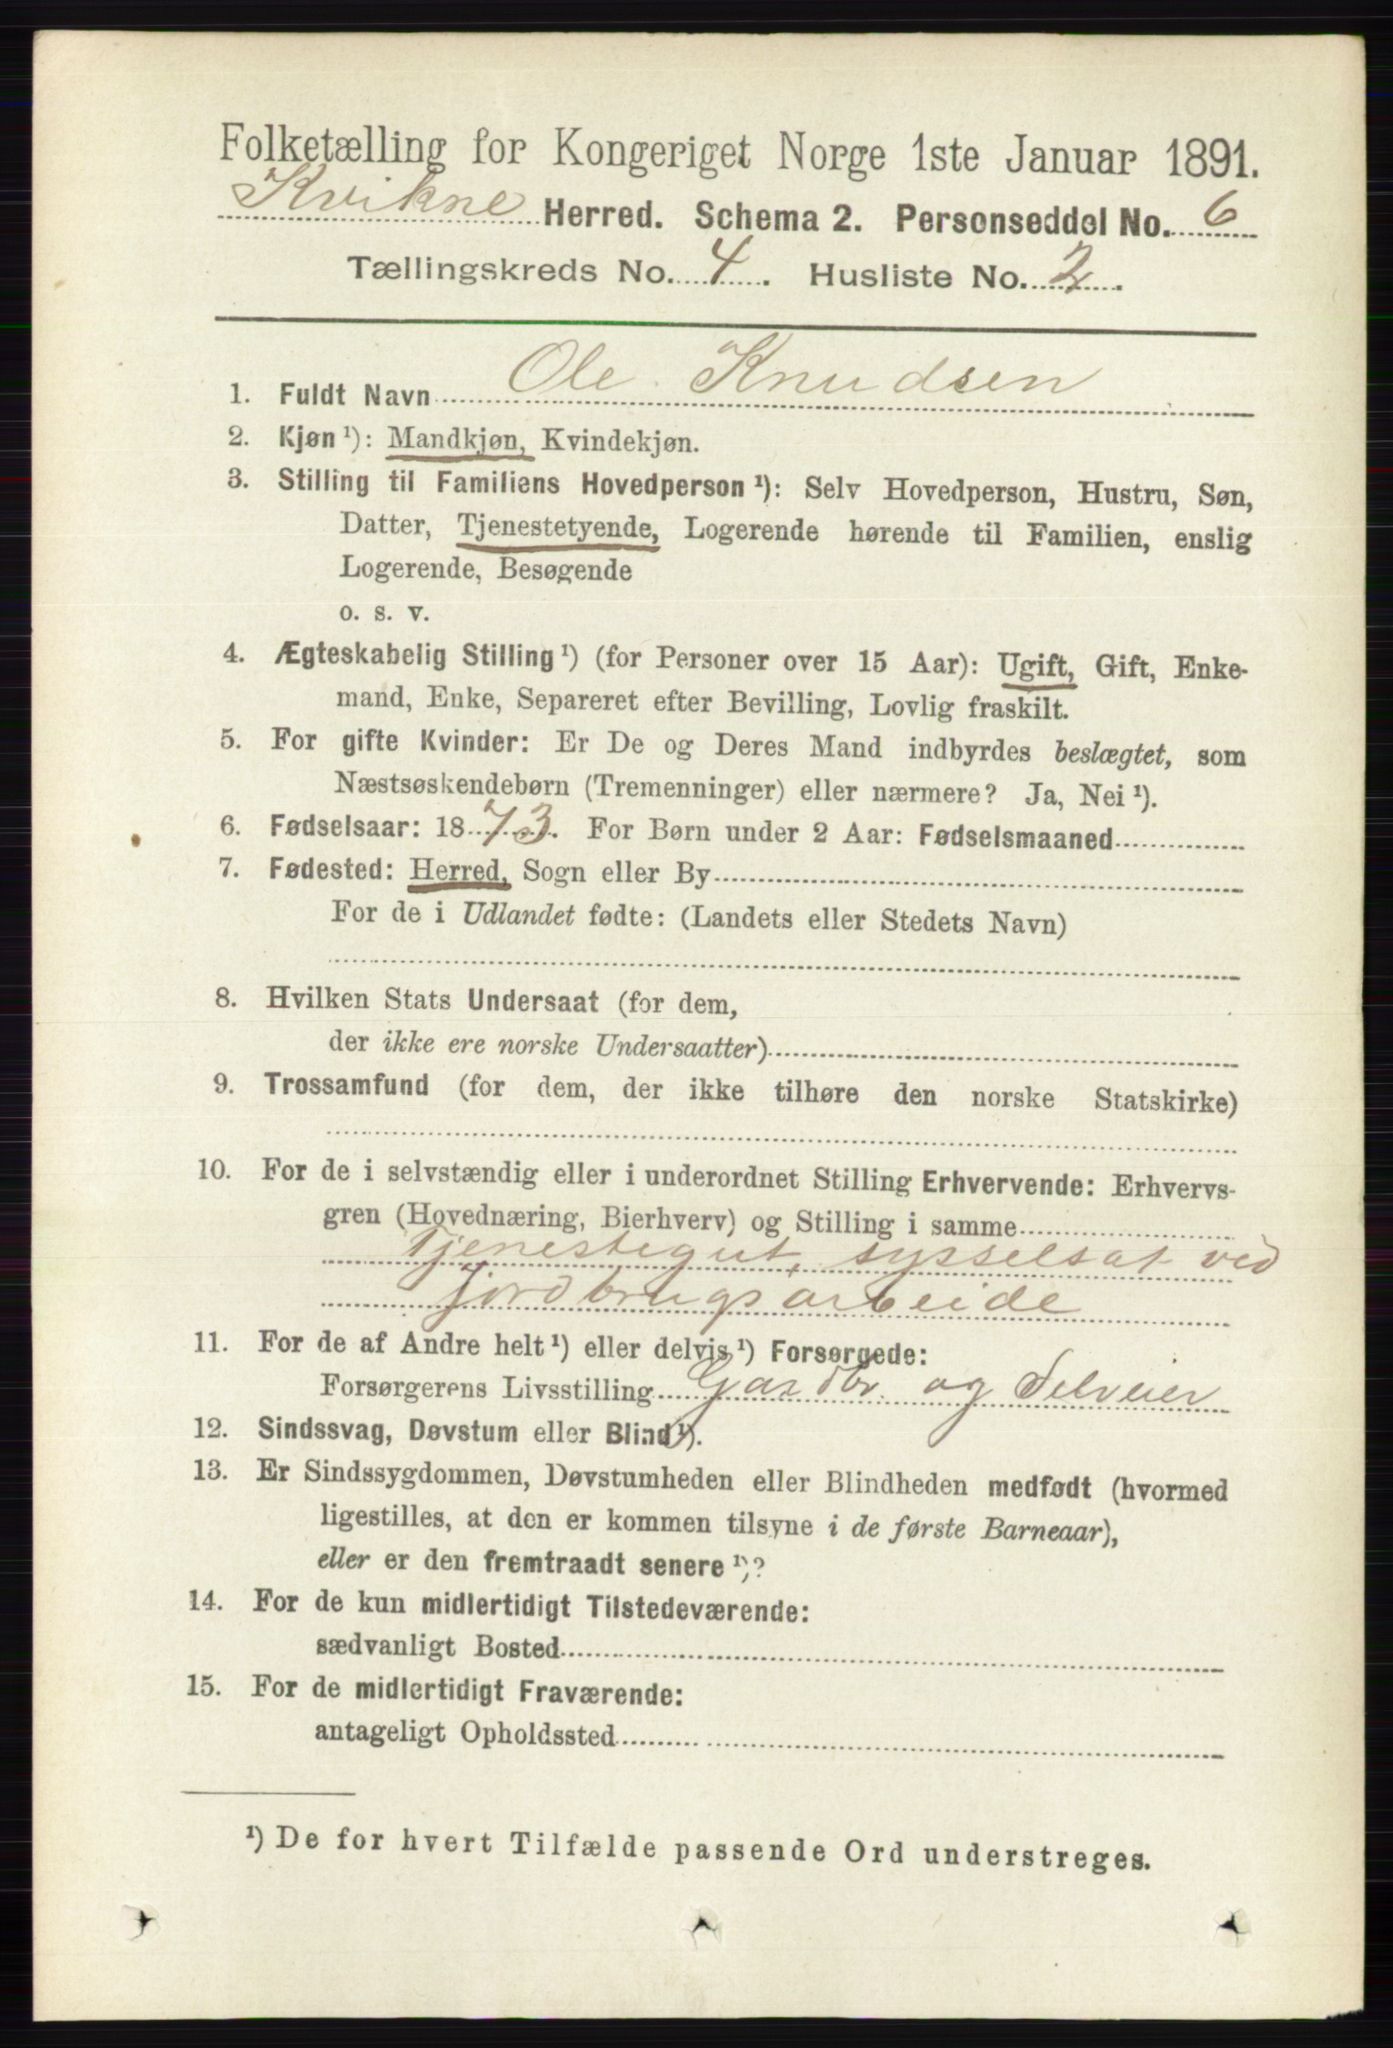 Folketælling for Kongeriget Norge 1ste Januar 1891.
Kvikne Herred. Schema 2. Personseddel No. 6
Tællingskreds No. 4. Husliste No. 2.
1. Fuldt Navn Ole Knudsen
2. Kjøn ¹): Mandkjøn, Kvindekjøn.
3. Stilling til Familiens Hovedperson ¹): Selv Hovedperson, Hustru, Søn,
Datter, Tjenestetyende, Logerende hørende til Familien, enslig
Logerende, Besøgende
o. s. v.
4. Ægteskabelig Stilling ¹) (for Personer over 15 Aar): Ugift, Gift, Enke-
mand, Enke, Separeret efter Bevilling, Lovlig fraskilt.
5. For gifte Kvinder: Er De og Deres Mand indbyrdes beslægtet, som
Næstsøskendebørn (Tremenninger) eller nærmere? Ja, Nei ¹).
6. Fødselsaar: 1873. For Børn under 2 Aar: Fødselsmaaned
7. Fødested: Herred, Sogn eller By
For de i Udlandet fødte: (Landets eller Stedets Navn)
8. Hvilken Stats Undersaat (for dem,
der ikke ere norske Undersaatter)
9. Trossamfund (for dem, der ikke tilhøre den norske Statskirke)
10. For de i selvstændig eller i underordnet Stilling Erhvervende: Erhvervs-
gren (Hovednæring, Bierhverv) og Stilling i samme
Tjenestegut, sysselsat ved
Jordbrugsarbeide
11. For de af Andre helt ¹) eller delvis ¹) Forsørgede:
Forsørgerens Livsstilling Gardbr. og Selveier
12. Sindssvag, Døvstum eller Blind ¹).
13. Er Sindssygdommen, Døvstumheden eller Blindheden medfødt (hvormed
ligestilles, at den er kommen tilsyne i de første Barneaar),
eller er den fremtraadt senere ¹)?
14. For de kun midlertidigt Tilstedeværende:
sædvanligt Bosted
15. For de midlertidigt Fraværende:
antageligt Opholdssted
¹) De for hvert Tilfælde passende Ord understreges.